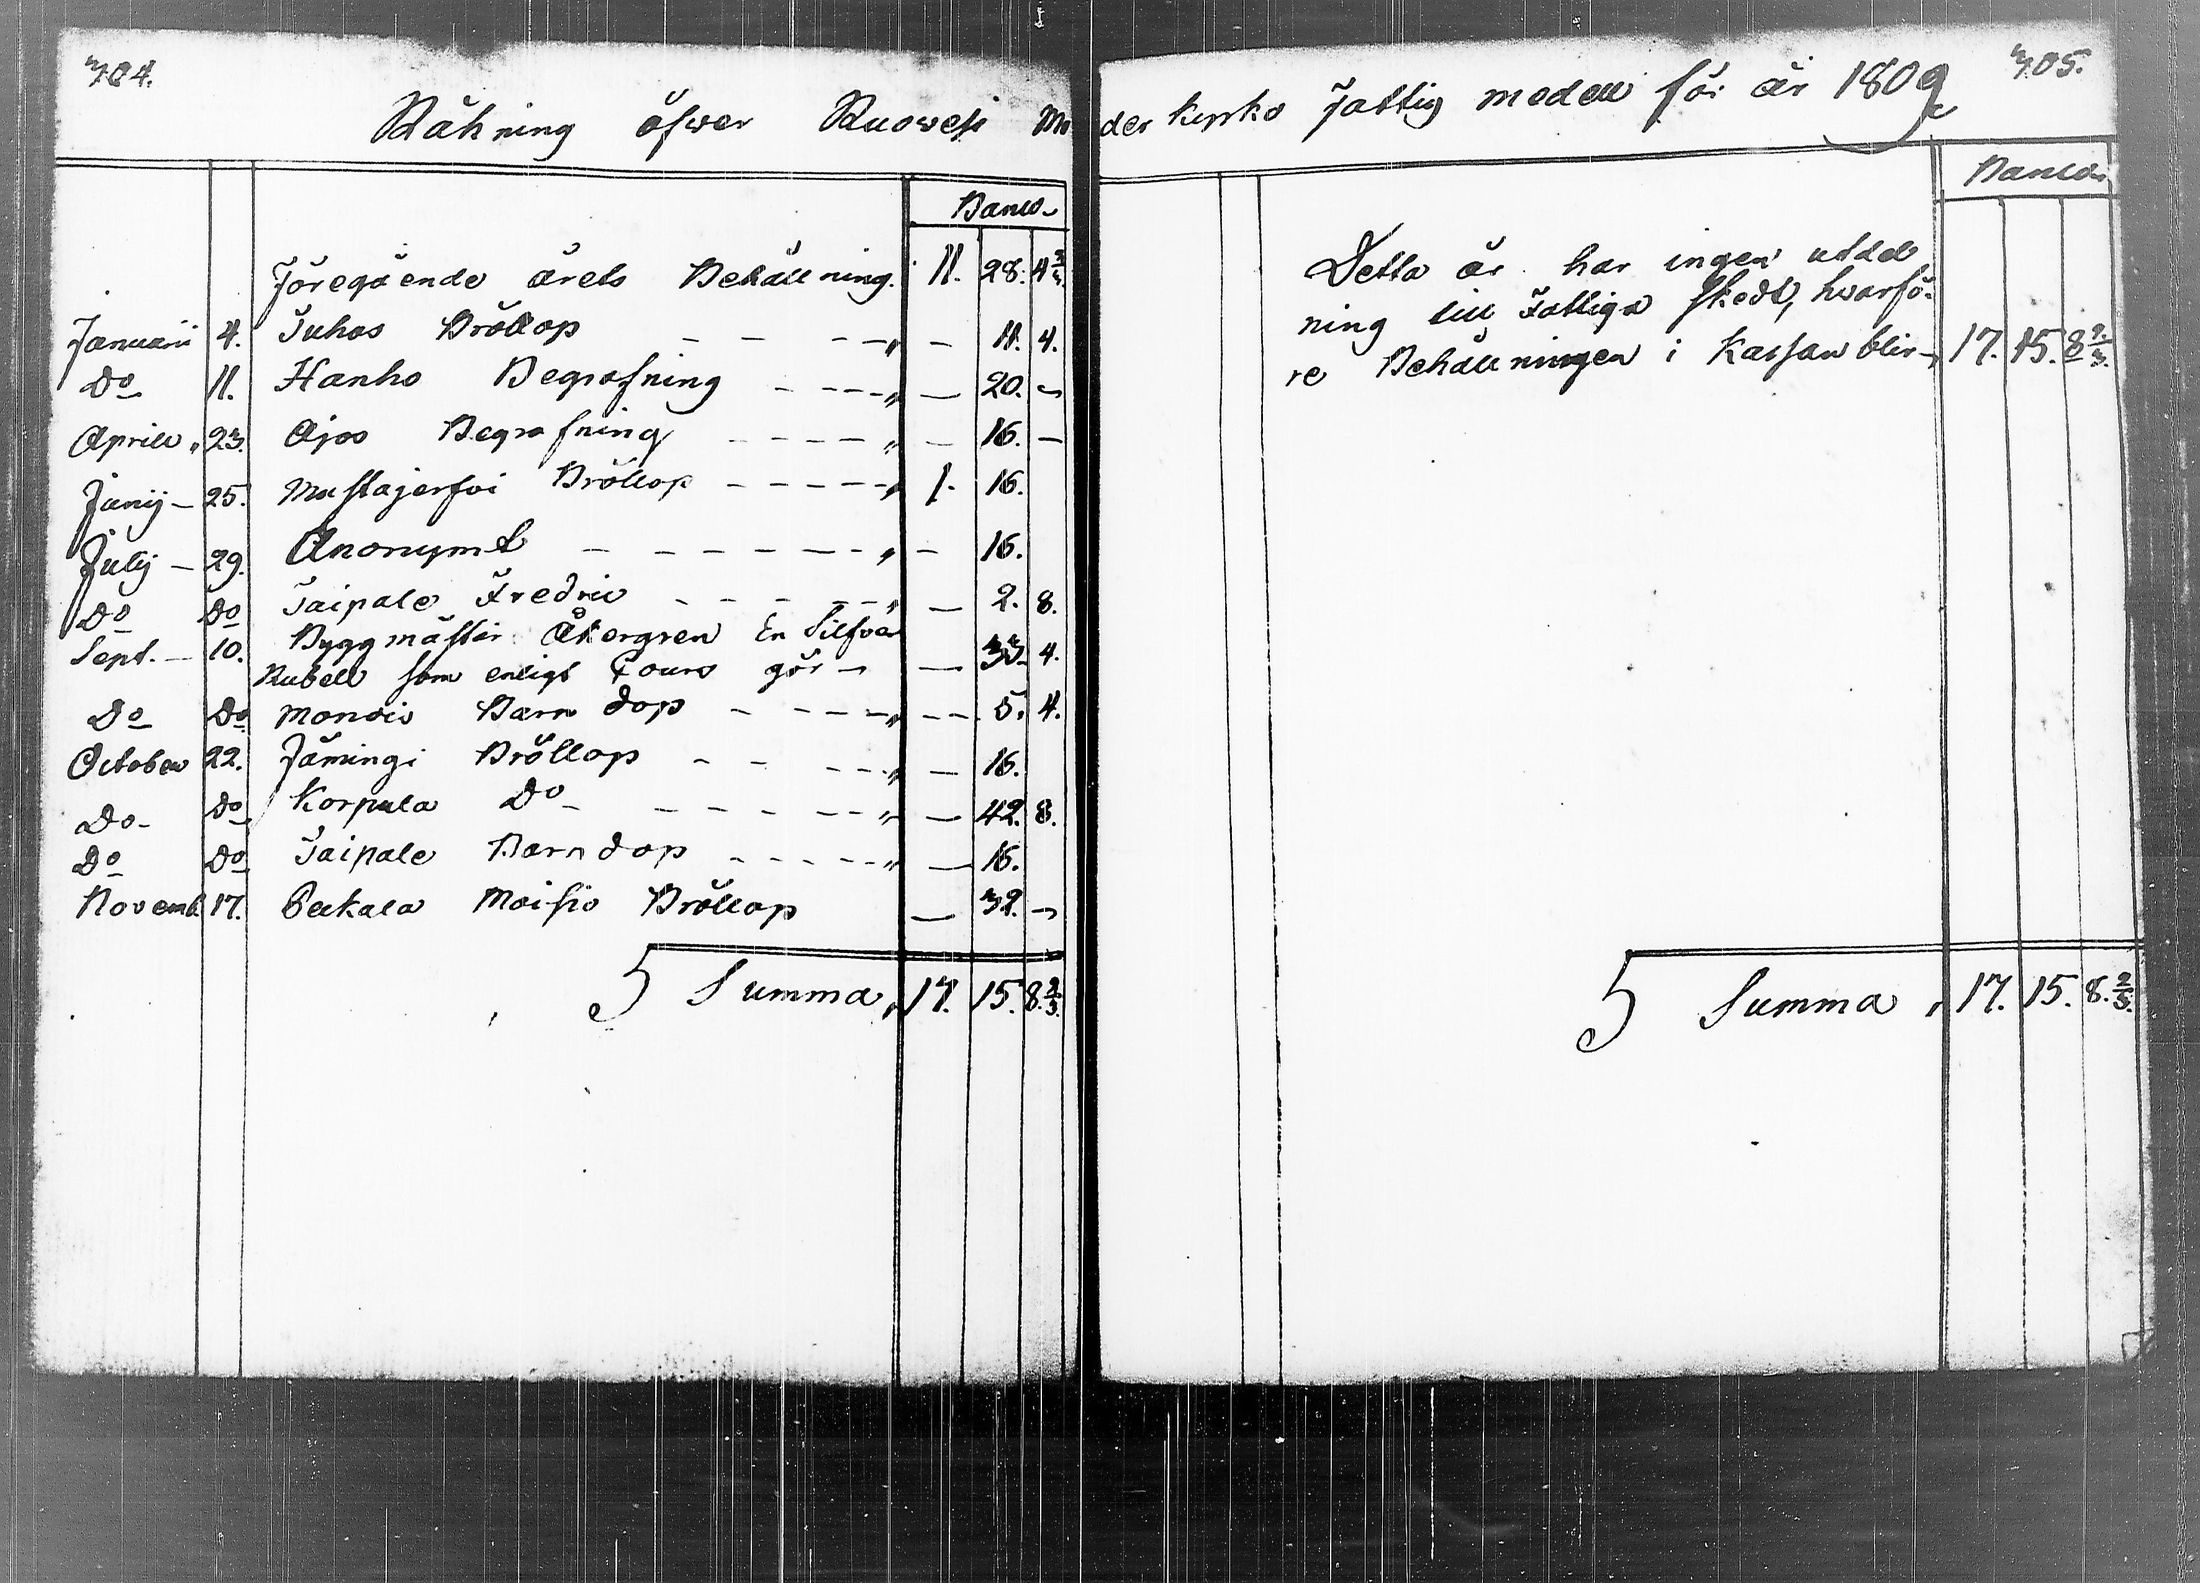 304.
Räkning öfwer Ruowesi Mo
Banco
Föregående årets Behållning. 11. 28. 4 2/3.
Januarii 4. Juhos Bröllop - - - - „ - 11. 4.
Do 11. Hanho Begrafning - - - - „ - 20. -
Aprill „ 23. Ajos Begrafning - - - - „ - 16. -
Junij - 25. Mustajerfvi Bröllop - - - - - „ 1. 16.
Julij - 29. Anonymt - - - - - - - „ - 16.
Do Do Taipale Fredric - - - - - „ - 2. 8.
Sept. - 10. Byggmäster Åkergren En Silfver
Rubell som enligt Cours gör - - 33. 4.
Do Do Monois Barn dop - - - - - „ - - 5. 4.
October 22. Jämingi Bröllop - - - - - „ - 16.
Do - Do Korpula Do - - - - - „ - 42. 8.
Do Do Taipale Barndop - - - - - „ - 16.
Novemb. 17. Peckala Moisio Bröllop - 32. -
Summa, 17. 15. 8. 2/3.
305.
der kyrko Fattig medell för år 1809
Banco
Detta år har ingen utdel
ning till Fattiga skedt, hvarfö-
re Behållningen i Kassan blir - 17. 15. 8 2/3.
Summa , 17. 15. 8. 2/3.